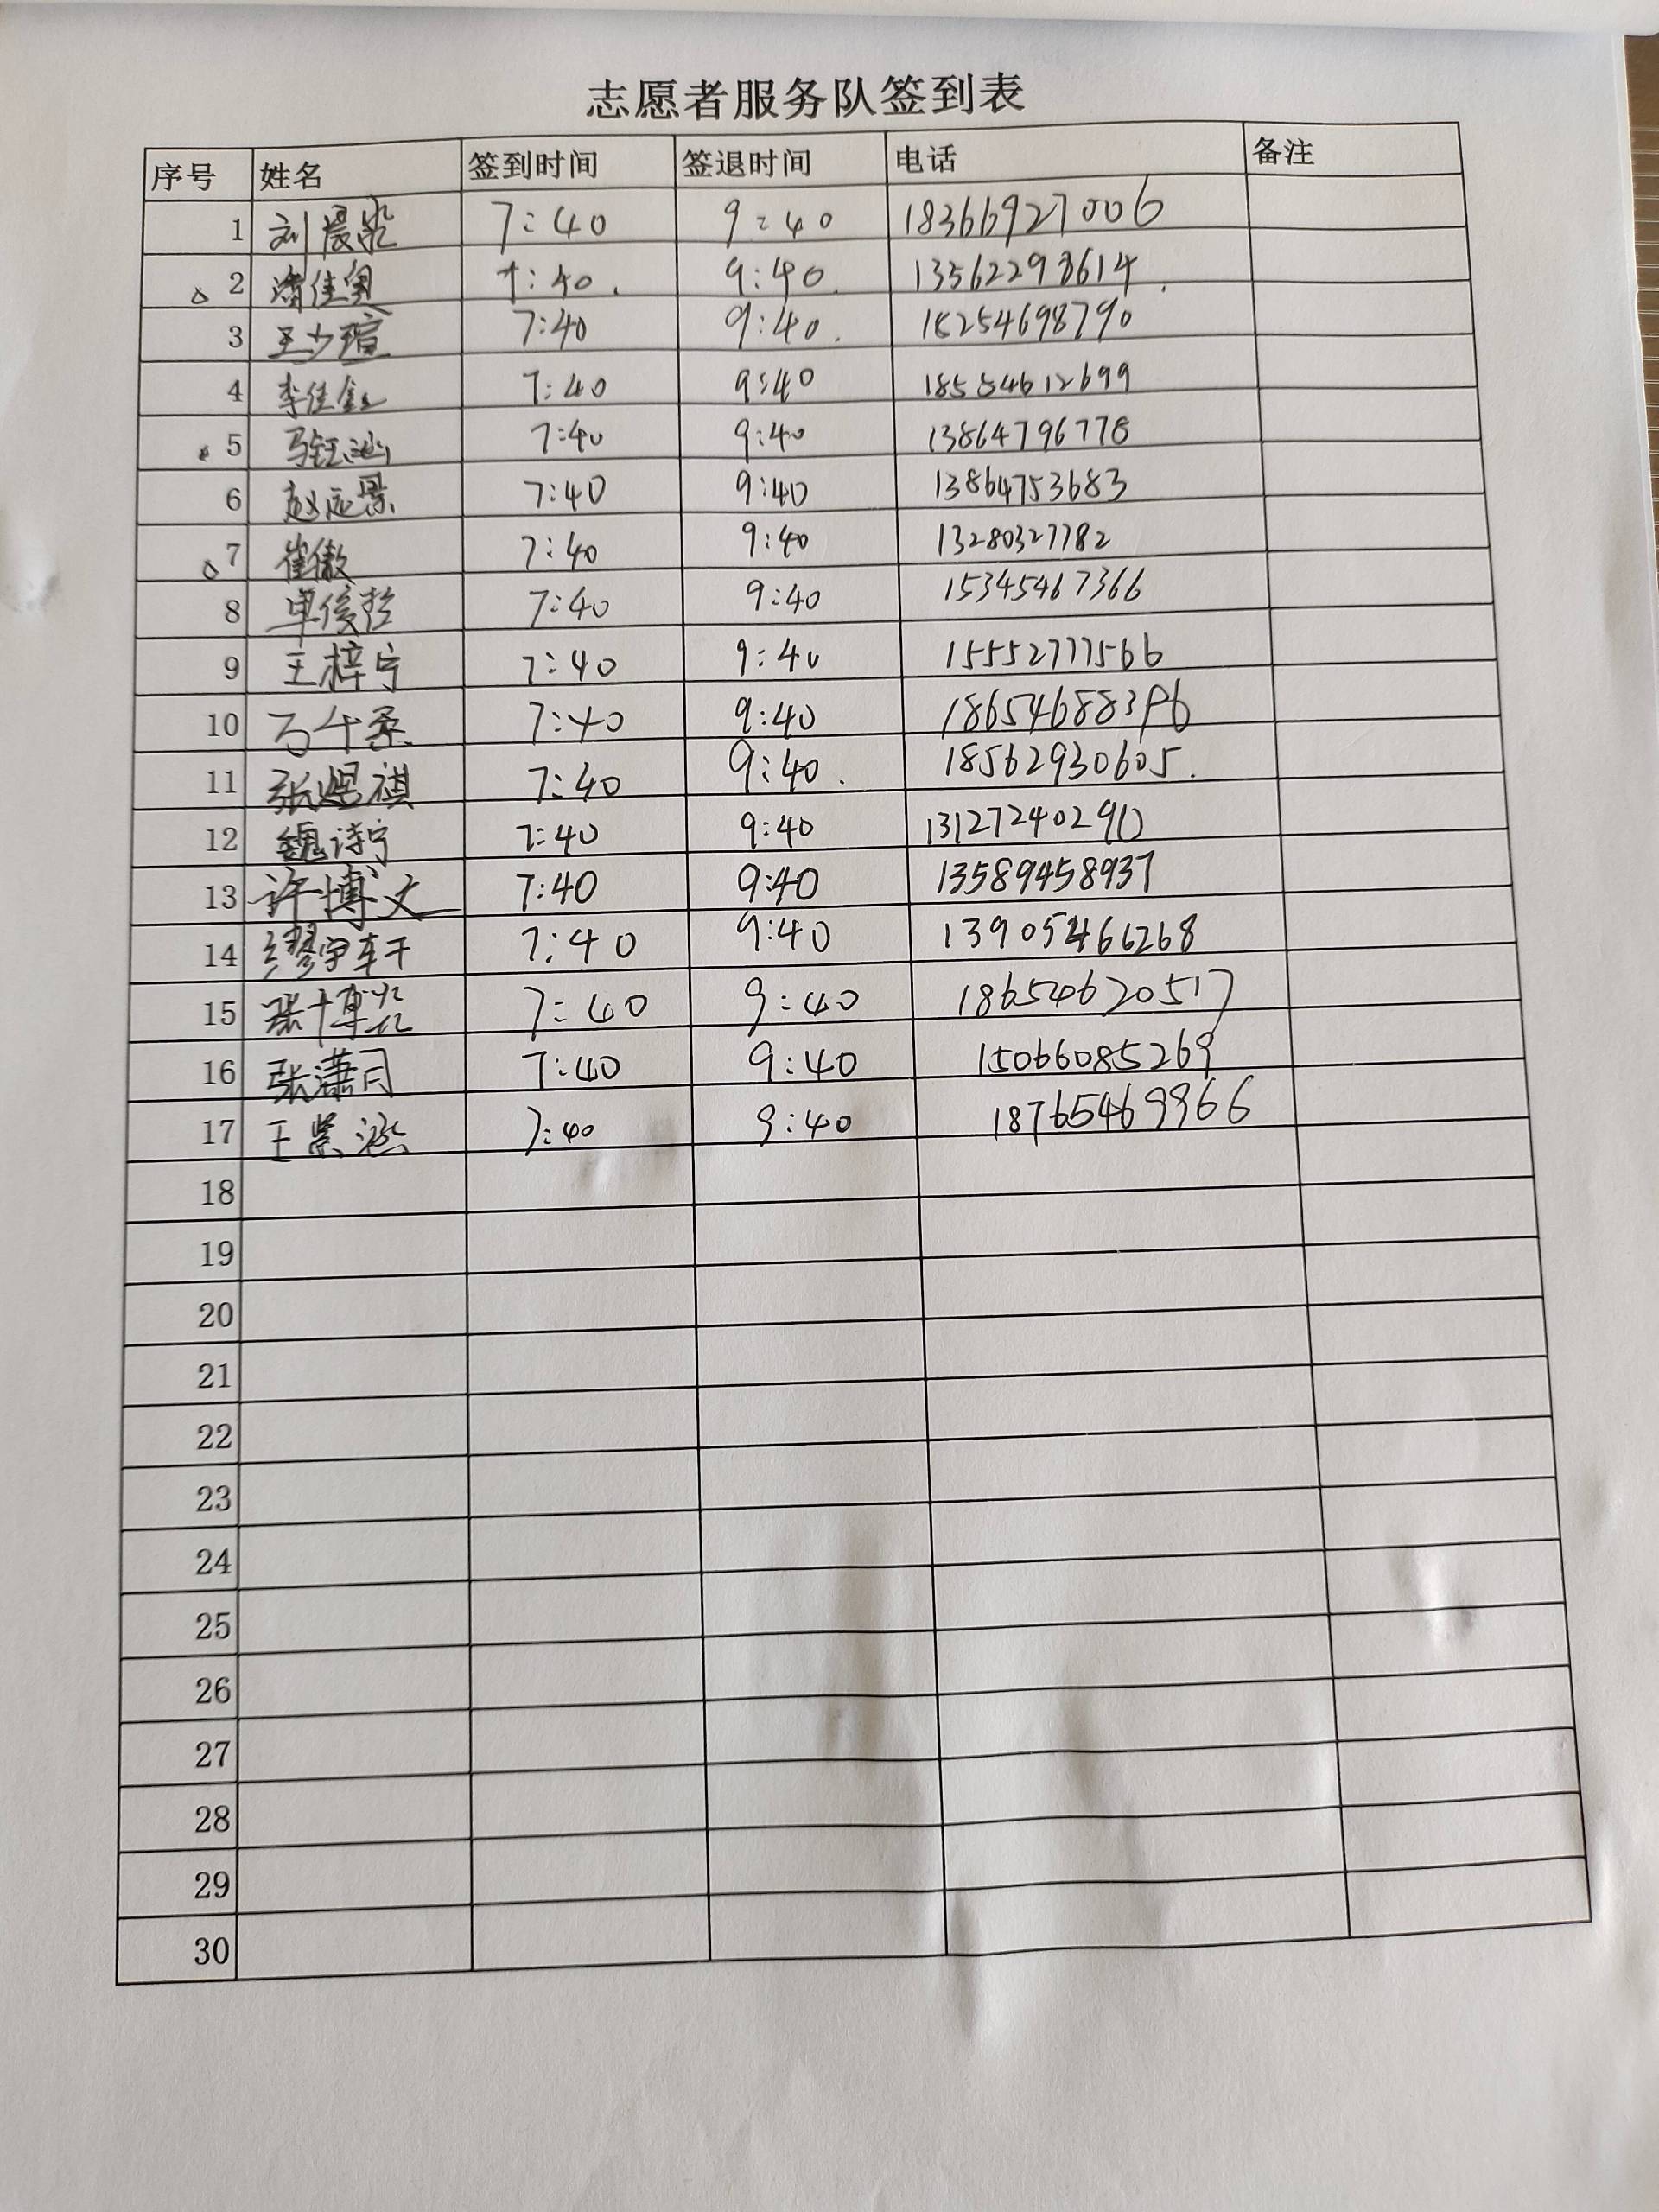 志愿者服务队签到表
序号 姓名 签到时间 签退时间 电话 备注
1 刘晨泉 7:40 9:40 18366927006
2 9:40 13562293614
3 王少瑄 7:40 9:40 15254698790
4 李佳鑫 7:40 9:40 18554612699
5 马钰涵 7:40 9:40 13864796778
6 赵应景 7:40 9:40 13864753683
7 崔傲 7:40 9:40 13280327782
8 卓俊哲 7:40 9:40 15345467366
9 王梓宁 7:40 9:40 15552777566
10 7:40 9:40
11 张煜祺 7:40 9:40 18562930605
12 魏诗宁 7:40 9:40 13127240290
13 许博文 7:40 9:40 13589458937
14 缪宇轩 7:40 9:40 13905466268
15 张博芸 7:40 9:40 18654620517
16 张潇月 7:40 9:40 15066085269
17 王紫涵 7:40 9:40 18765469966
18
19
20
21
22
23
24
25
26
27
28
29
30